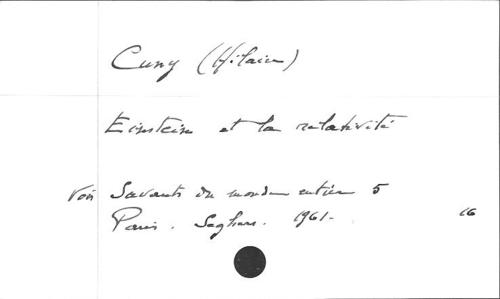 Cuny (Hilaire)
Einstein et la relativité
Voir Savants du monde entier 5
Paris. Seghers. 1961-
16